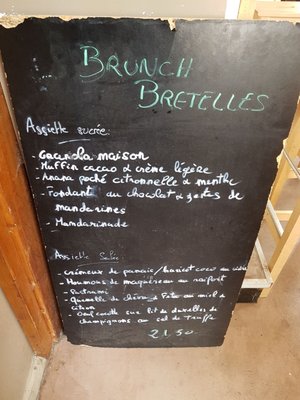 BRUNCH
BRETELLES
Assiette sucrée
- Granola maison
- Muffin cacao & crème légère
- Anana poché citronnelle & menthe
- Fondant au chocolat & zestes de
mandarines
- Mandarinade
Assiette Salée
- Crémeux de panais/haricot coco au cidre
- Houmous de maquereau au raifort
- Pastrami
- Quenelle de chèvre Feta au miel &
citron
- Oeuf cocotte sur lit de duxelles de
champignons au sel de Truffe
21.50